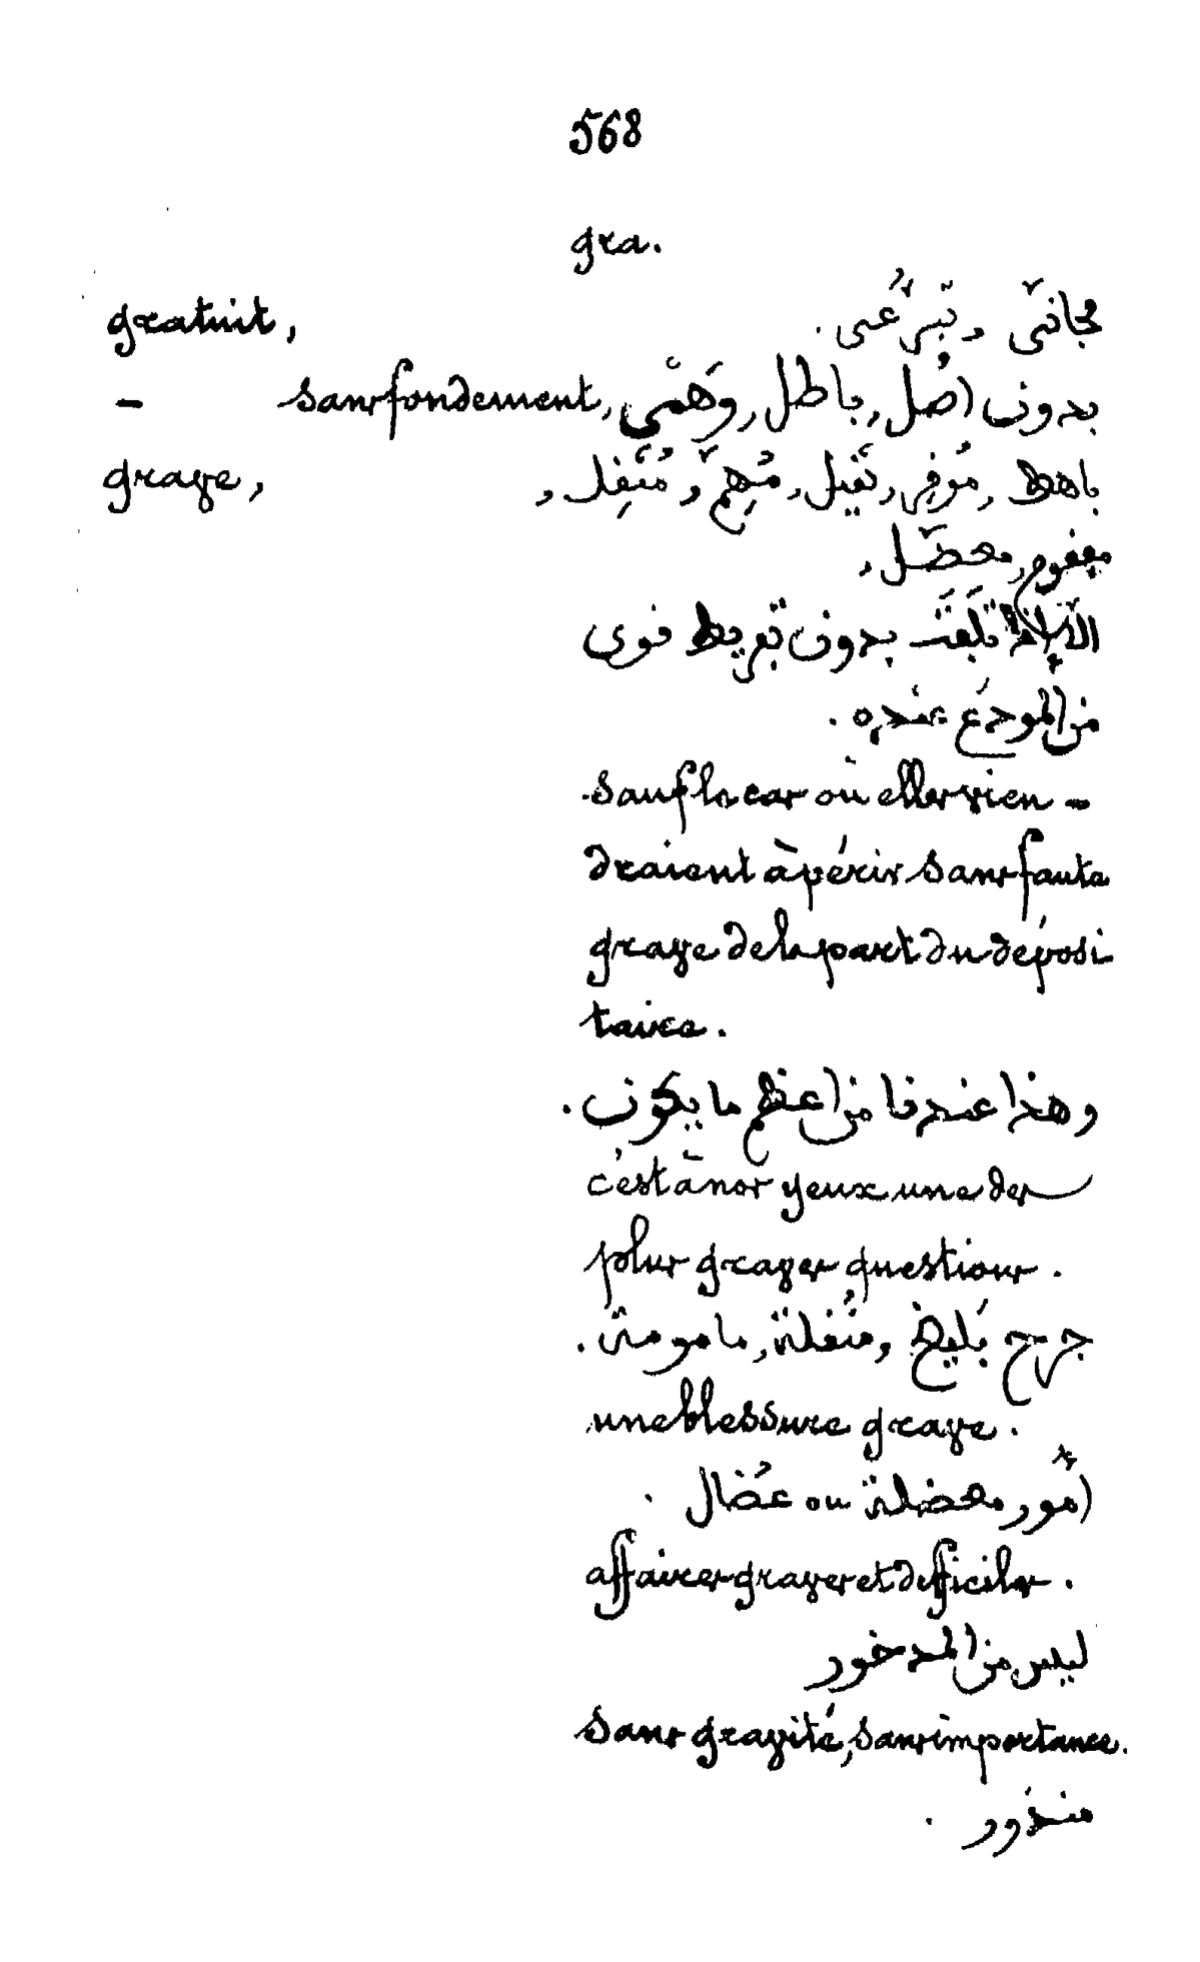 568
gra.
gratuit, مجانىّ, تبرُّعى.
- sans fondement, بدون اصُل, باطل, وَهْمى,
grave, باهظ, مُوفِر, ثَفيل, مُهِمّ, مُثَفِل,
معضّل,
الّا اذا تَلَفَت بدون تفريط فوى
من المودَع عنده.
sauf le cas où elles vien-
draient à périr sans faute
grave de la part du déposi
taire.
وهذا عندنا من اعظم ما يكون.
c'est à nos yeux une des
plus graves questions.
جرح بَليغ, مثُفلة, مامومة.
une blessure grave.
امُور معضلة ou عُضال.
affaires graves et difficiles.
ليس من المدخور
sans gravité, sans importance.
منذور.